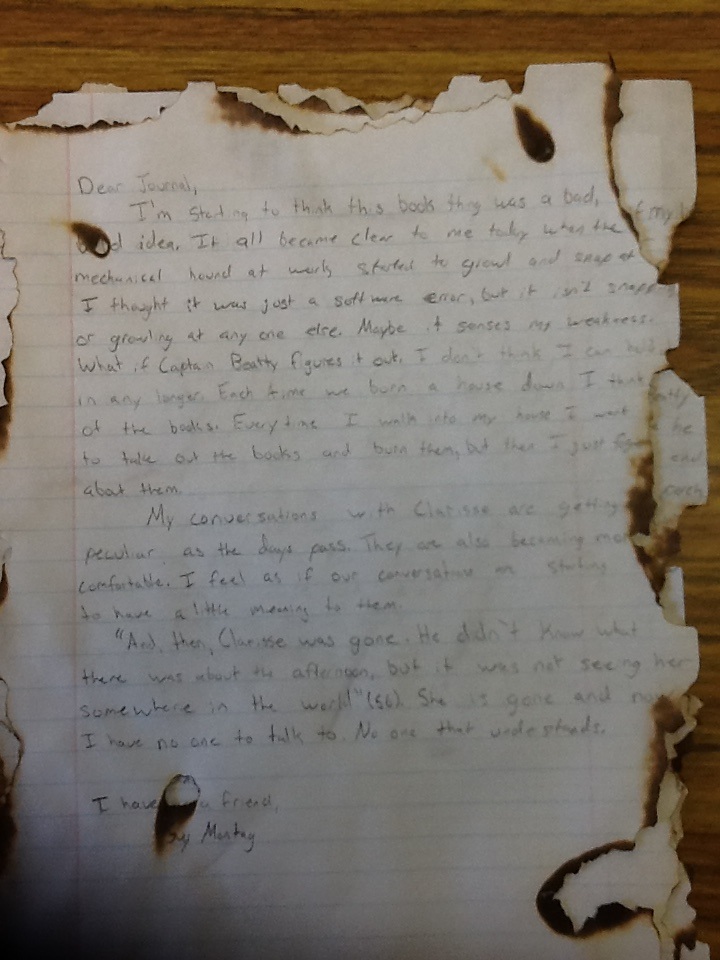 Dear Journal,
I'm starting to think this book thing was a bad,
bad idea. It all became clear to me today when the
mechanical hound at work started to growl and snap at
I thought it was just a software error, but it isn't
or growling at any one else. Maybe it senses my weakness.
What if Captain Beatty figures it out. I don't think I can hold
in any longer. Each time we burn a house down I think
of the books. Everytime I walk into my house I want
to take out the books and burn them, but then I just
about them.
My conversations with Clarisse are getting
peculiar as the days pass. They are also becoming more
comfortable. I feel as if our conversations are starting
to have a little meaning to them.
"And then, Clarisse was gone. He didn't know what
there was about the afternoon, but it was not seeing her
somewhere in the world" She is gone and now
I have no one to talk to. No one that understands.
I have a friend,
Guy Montag